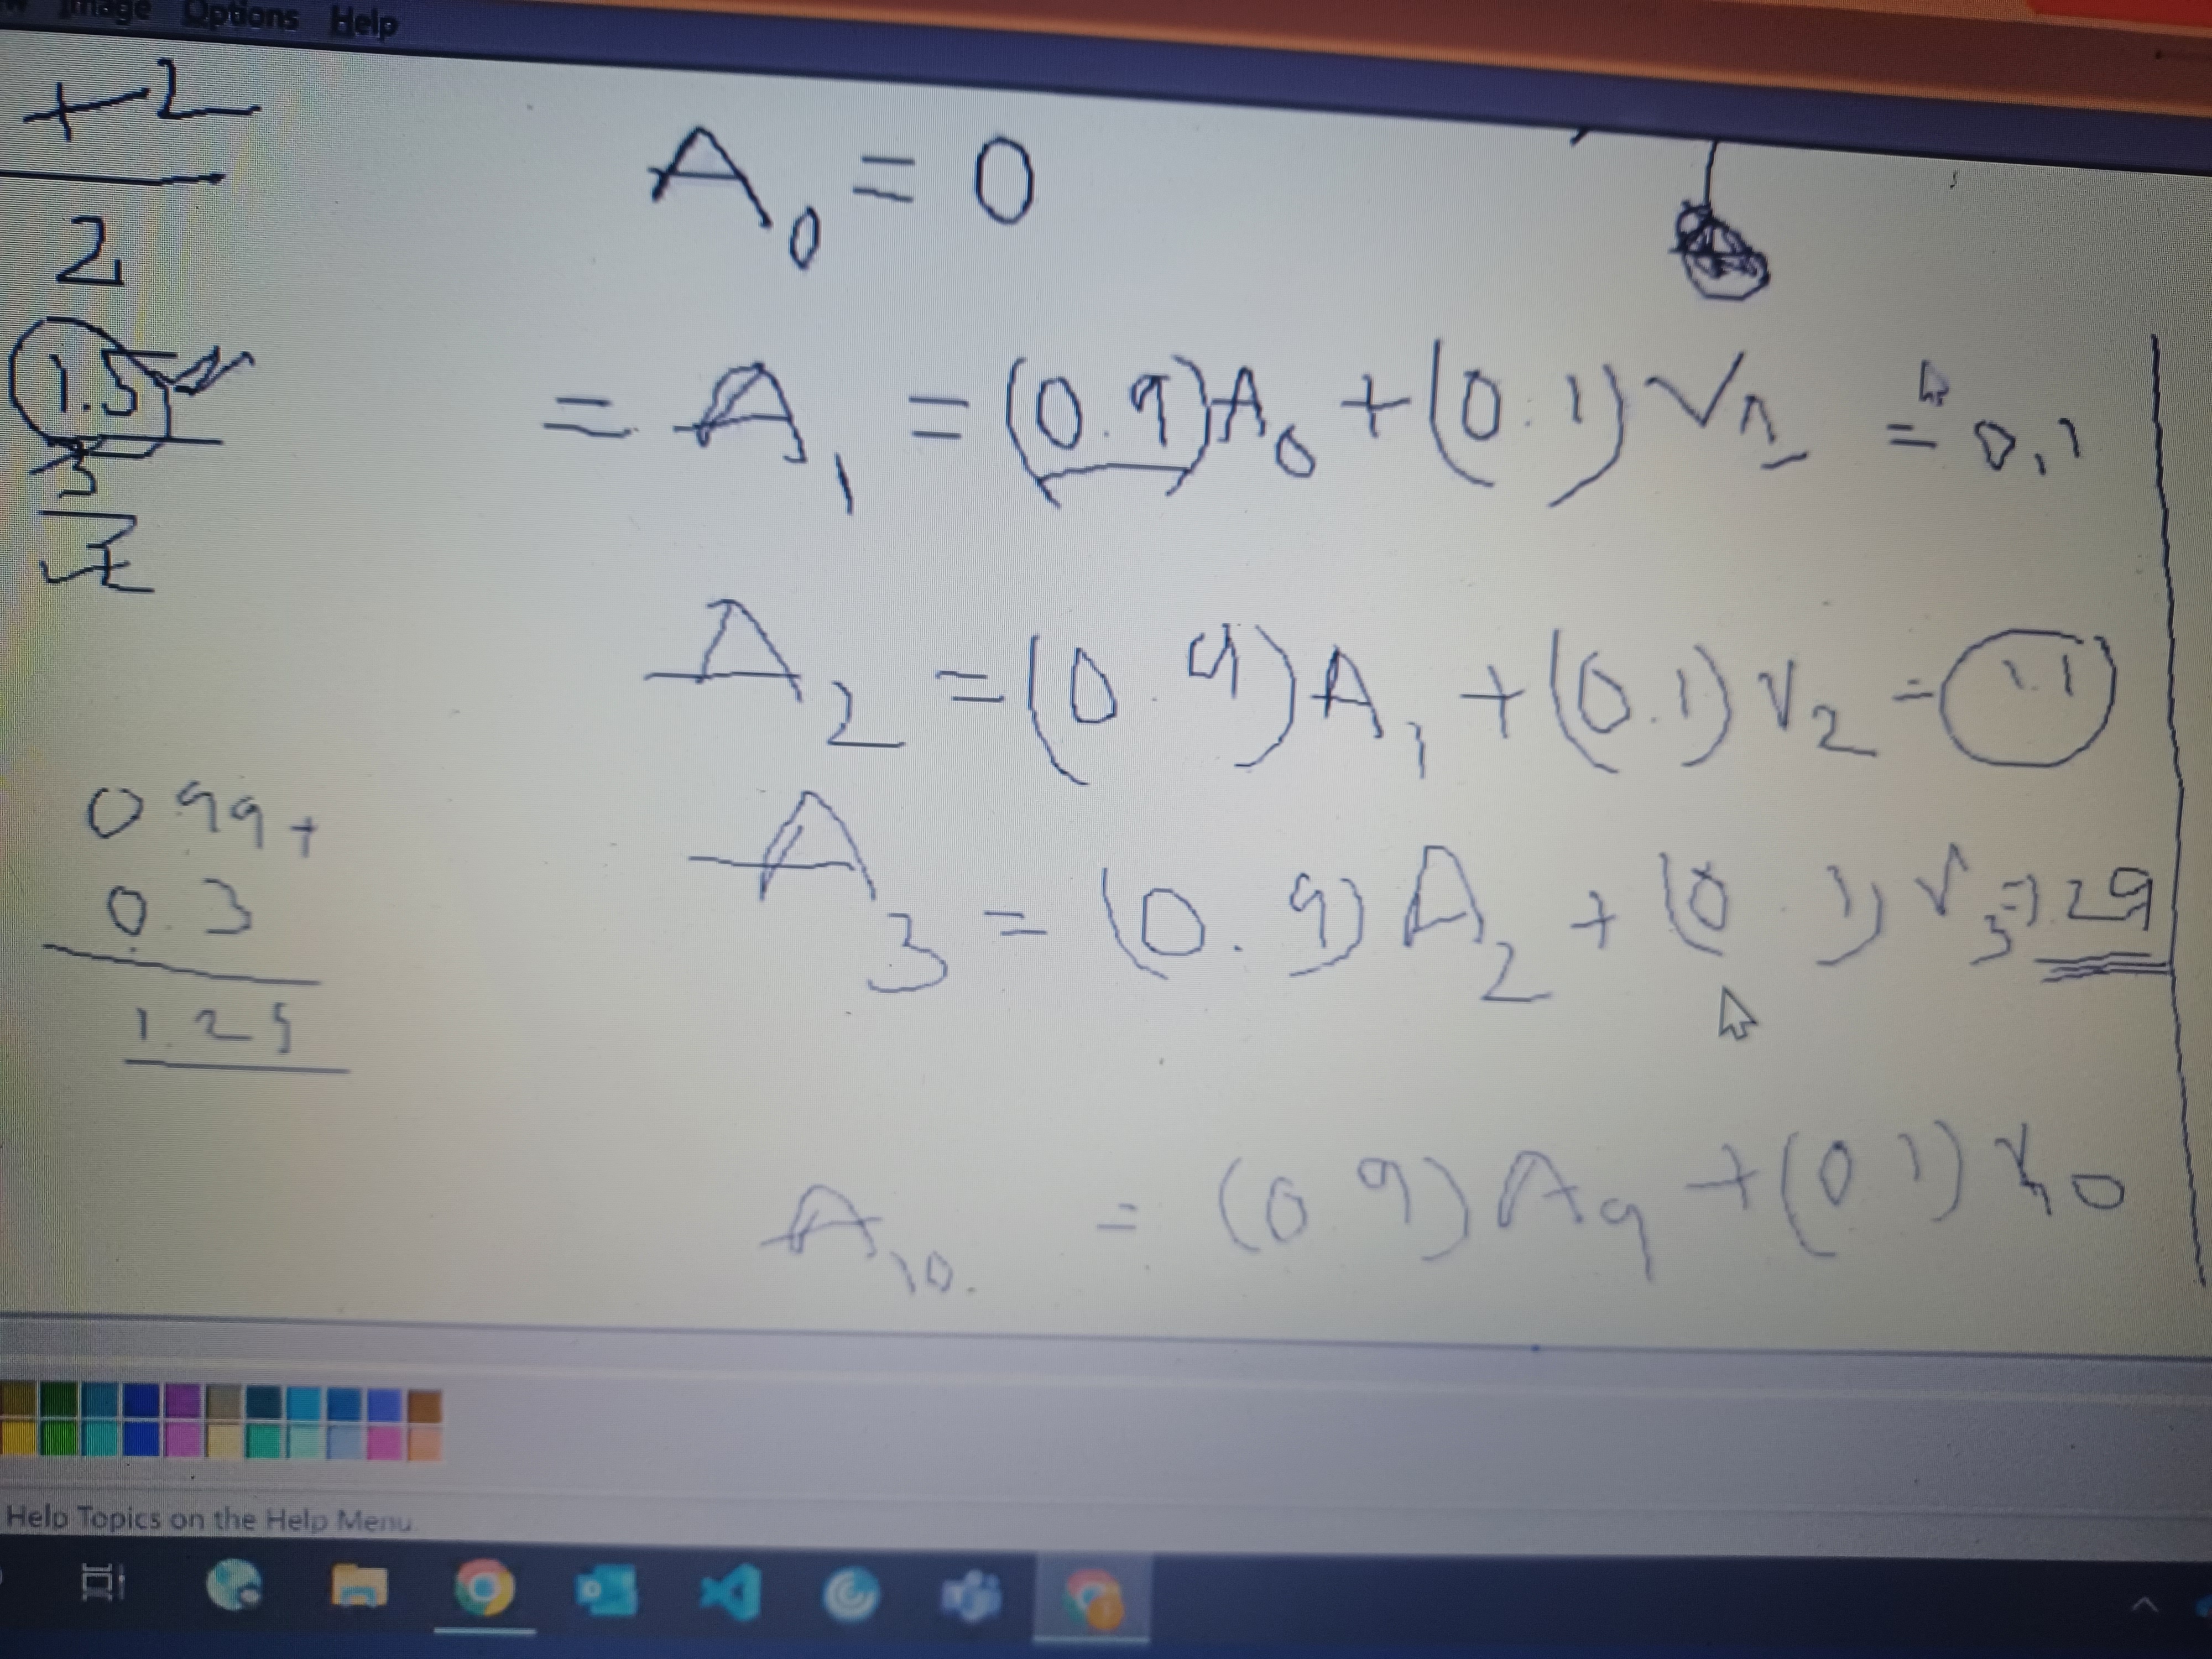 Image Options Help
+2
2
1.5
3
2
A0 = 0
= A1 = (0.9)A0 + (0.1) V1 = 0.1
A2 = (0.9)A1 + (0.1) V2 = 1.1
A3 = (0.9) A2 + (0.1) V3 = 1.29
0.99 +
0.3
1.29
A10. = (0.9) A9 + (0.1) V10
Help Topics on the Help Menu.